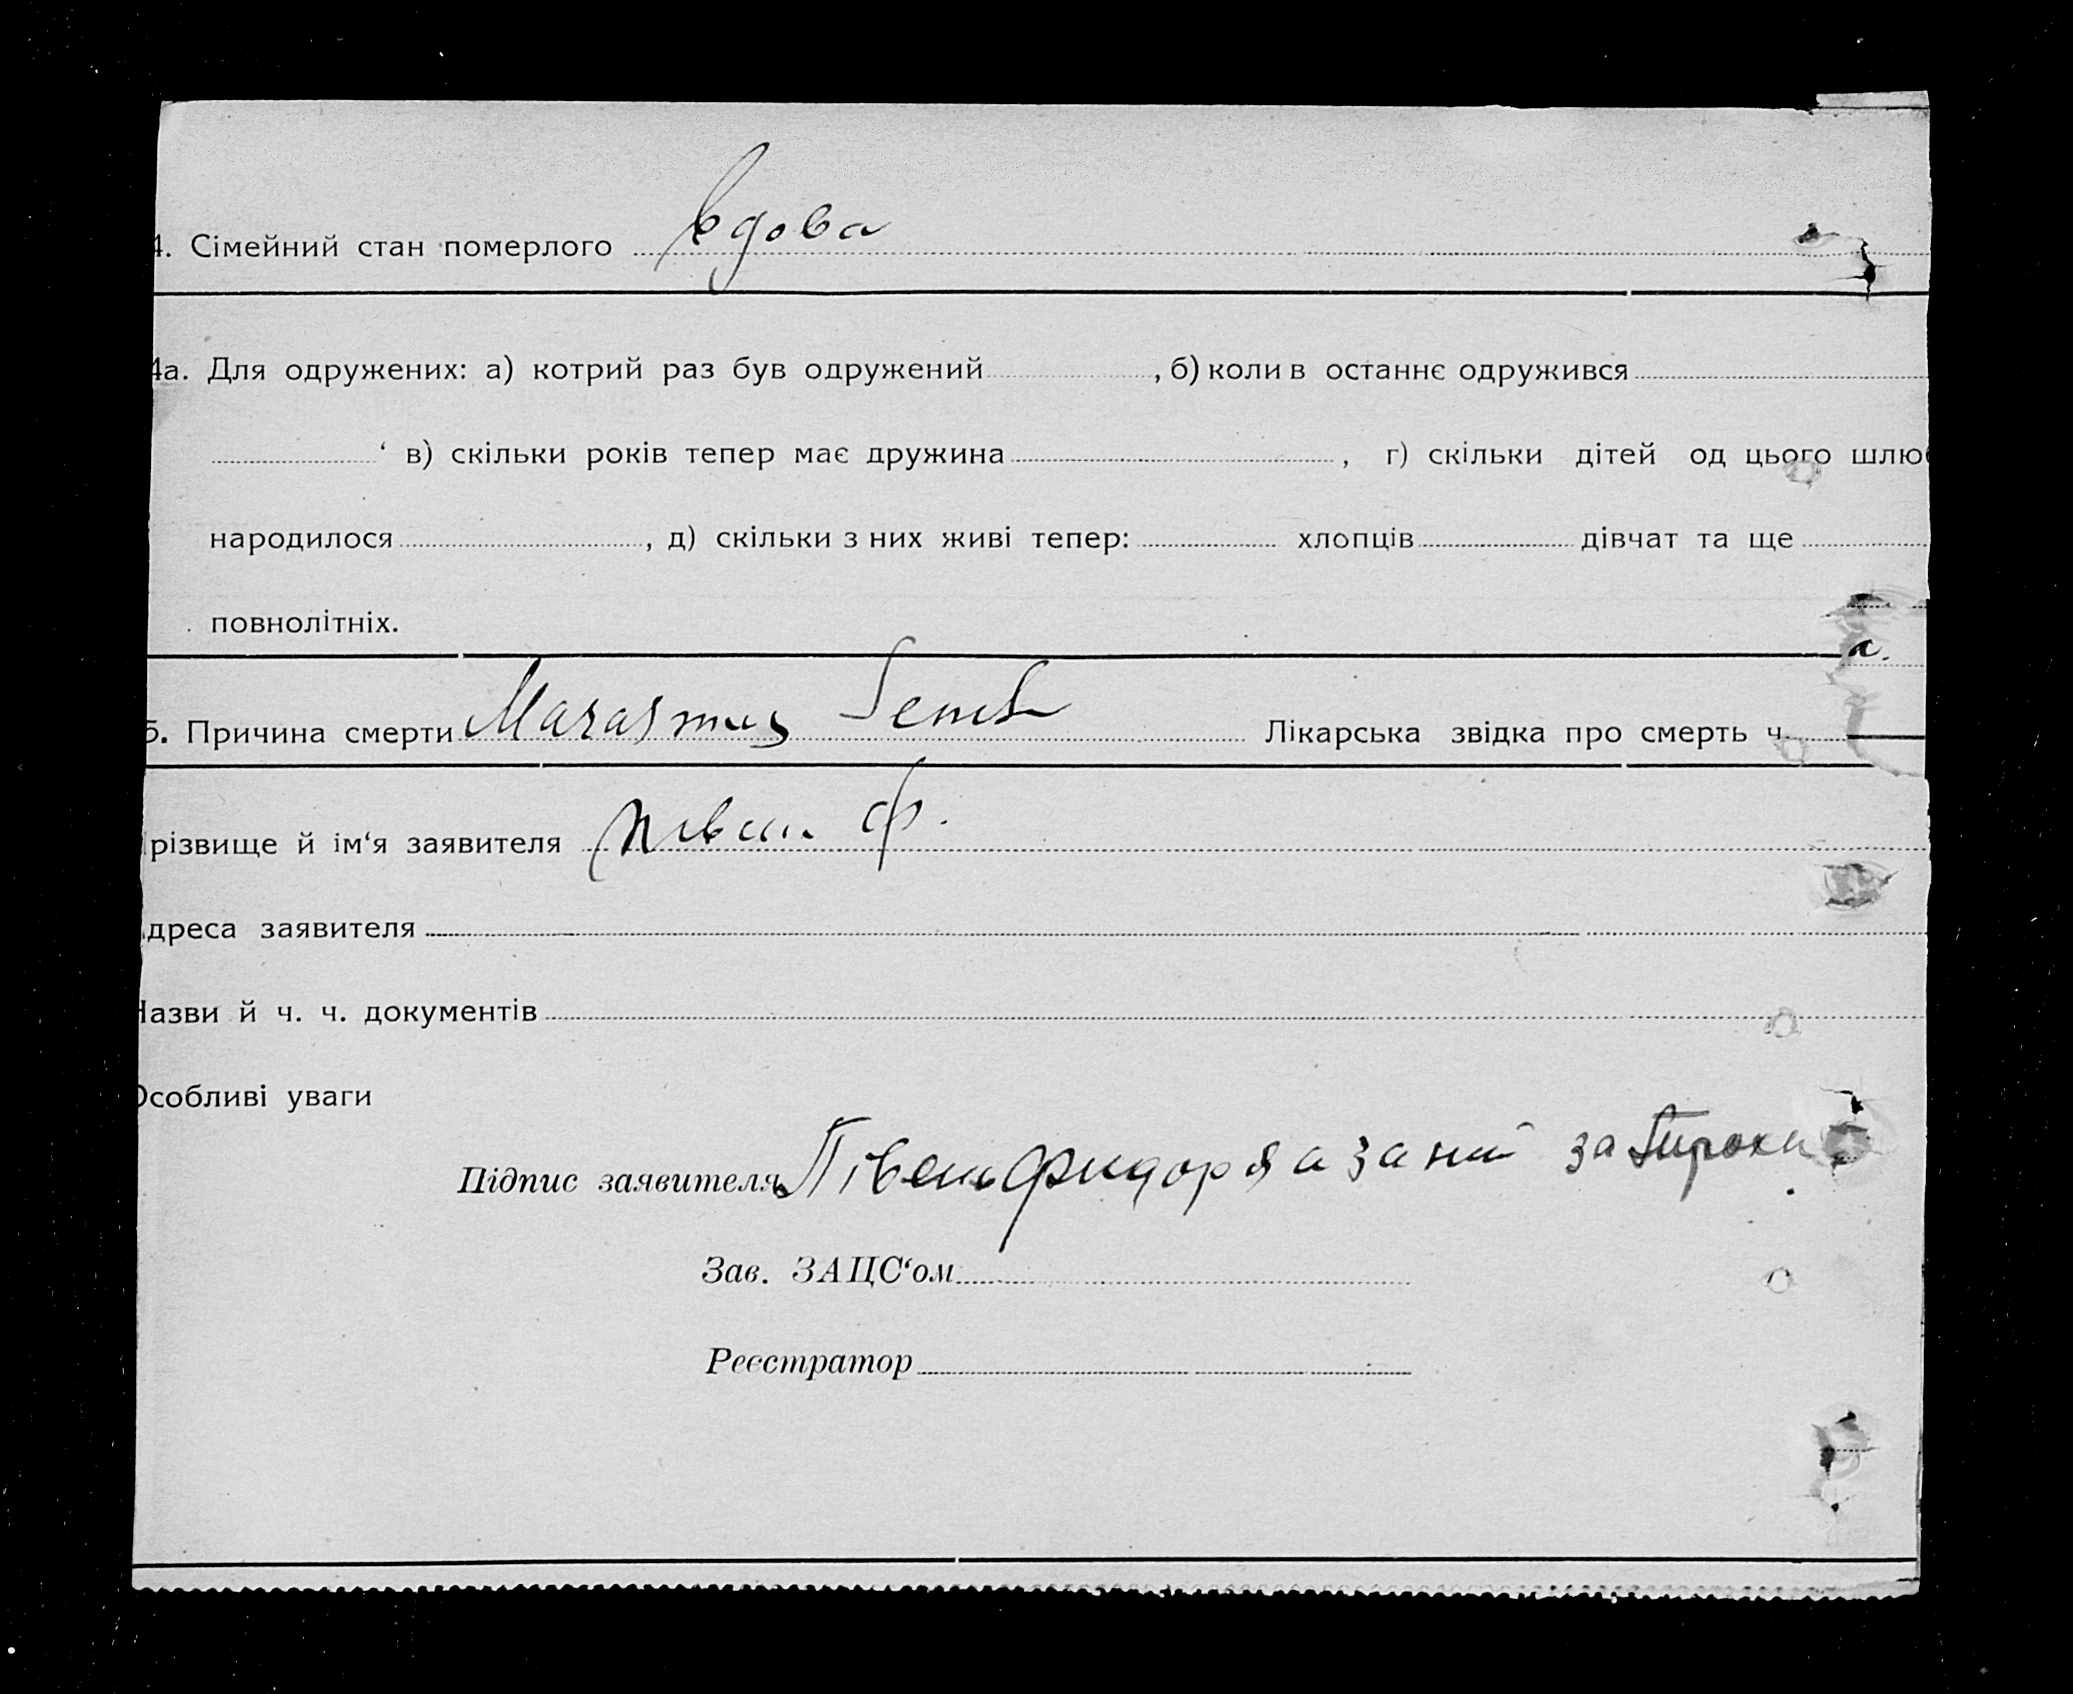 4. Сімейний стан померлого вдова
4а. Для одружених: а) котрий раз був одружений , б) коли в останнє одружився
‘ в) скільки років тепер має дружина , г) скільки дітей од цього шлюб
народилося , д) скільки з них живі тепер: хлопців дівчат та ще
повнолітніх.
5. Причина смерти Marasmus Senil Лікарська звідка про смерть ч.
Прізвище й ім‘я заявителя Півень Ф.
Адреса заявителя
Назви й ч. ч. документів
Особливі уваги
Підпис заявителя Півень Фидор
Зав. ЗАЦС‘ом
Реєстратор